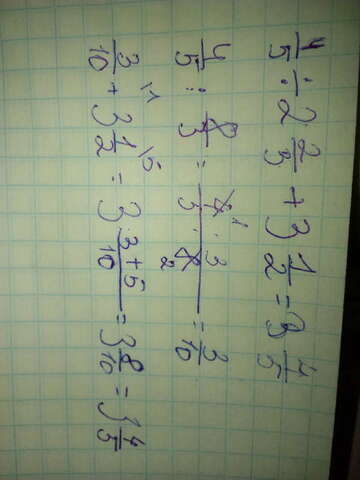 4/5 : 2 2/3 + 3 1/2 = 3 4/5
4/5 : 8/3 = 4 · 3 / 5 · 8 = 3/10
3/10 + 3 1/2 = 3 3+5/10 = 3 8/10 = 3 4/5